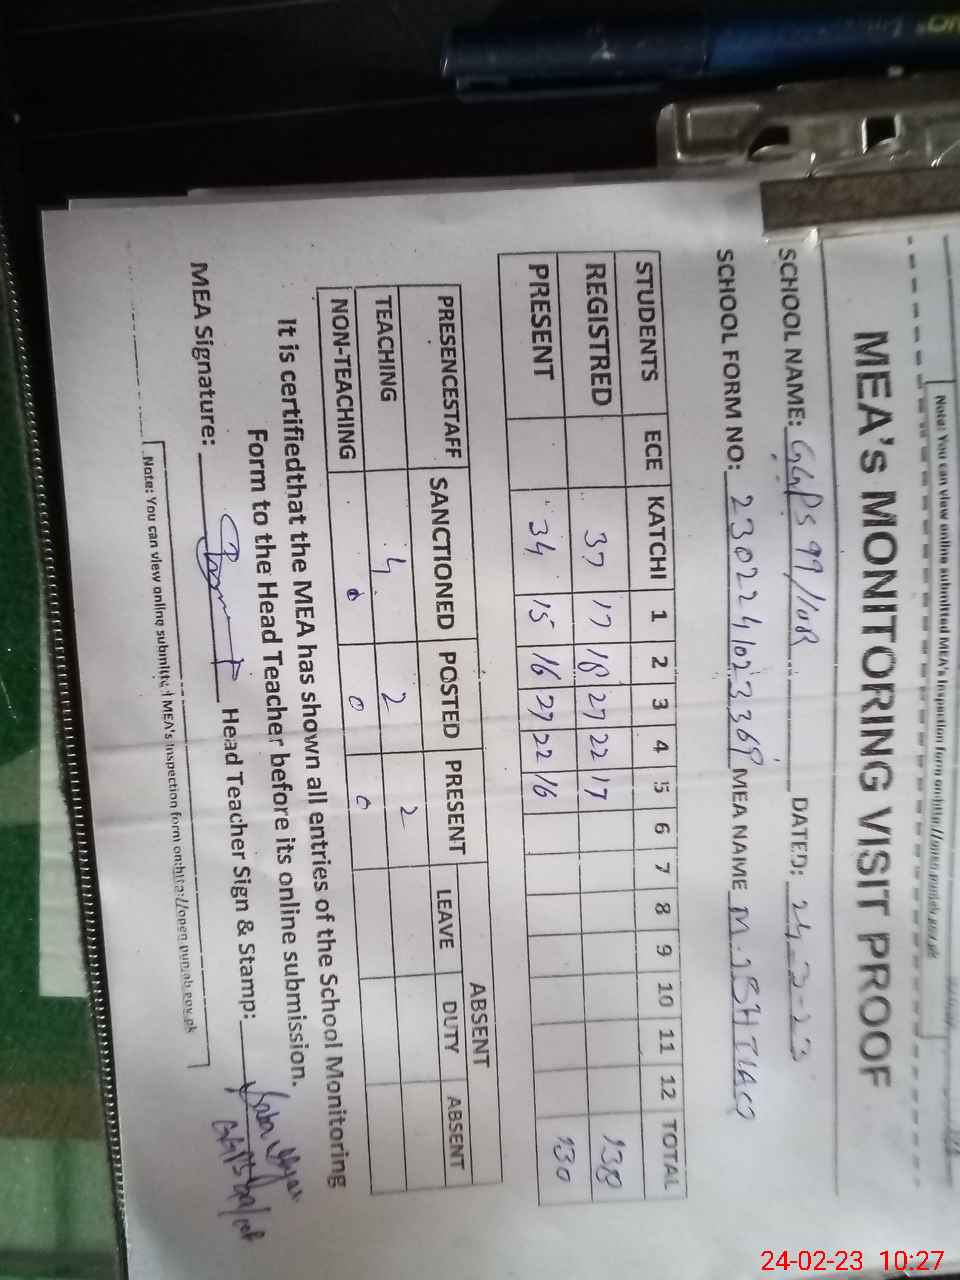 Note: You can view online submitted MEA's Inspection form on:http://open.punjab.gov.pk
MEA's MONITORING VISIT PROOF
SCHOOL NAME: GGPS 99/10R DATED: 24-2-23
SCHOOL FORM NO: 2302241023369 MEA NAME M. ISHTIAQ
STUDENTS ECE KATCHI 1 2 3 4 5 6 7 8 9 10 11 12 TOTAL
REGISTRED 37 17 18 27 22 17 138
PRESENT 34 15 16 27 22 16 130
PRESENCESTAFF SANCTIONED POSTED PRESENT ABSENT
LEAVE DUTY ABSENT
TEACHING 4 2 2
NON-TEACHING 0 0 0
It is certifiedthat the MEA has shown all entries of the School Monitoring
Form to the Head Teacher before its online submission.
MEA Signature: Head Teacher Sign & Stamp:
GGPS 99/10R
Note: You can view online submitted MEA's Inspection form on:http://open.punjab.gov.pk
24-02-23 10:27